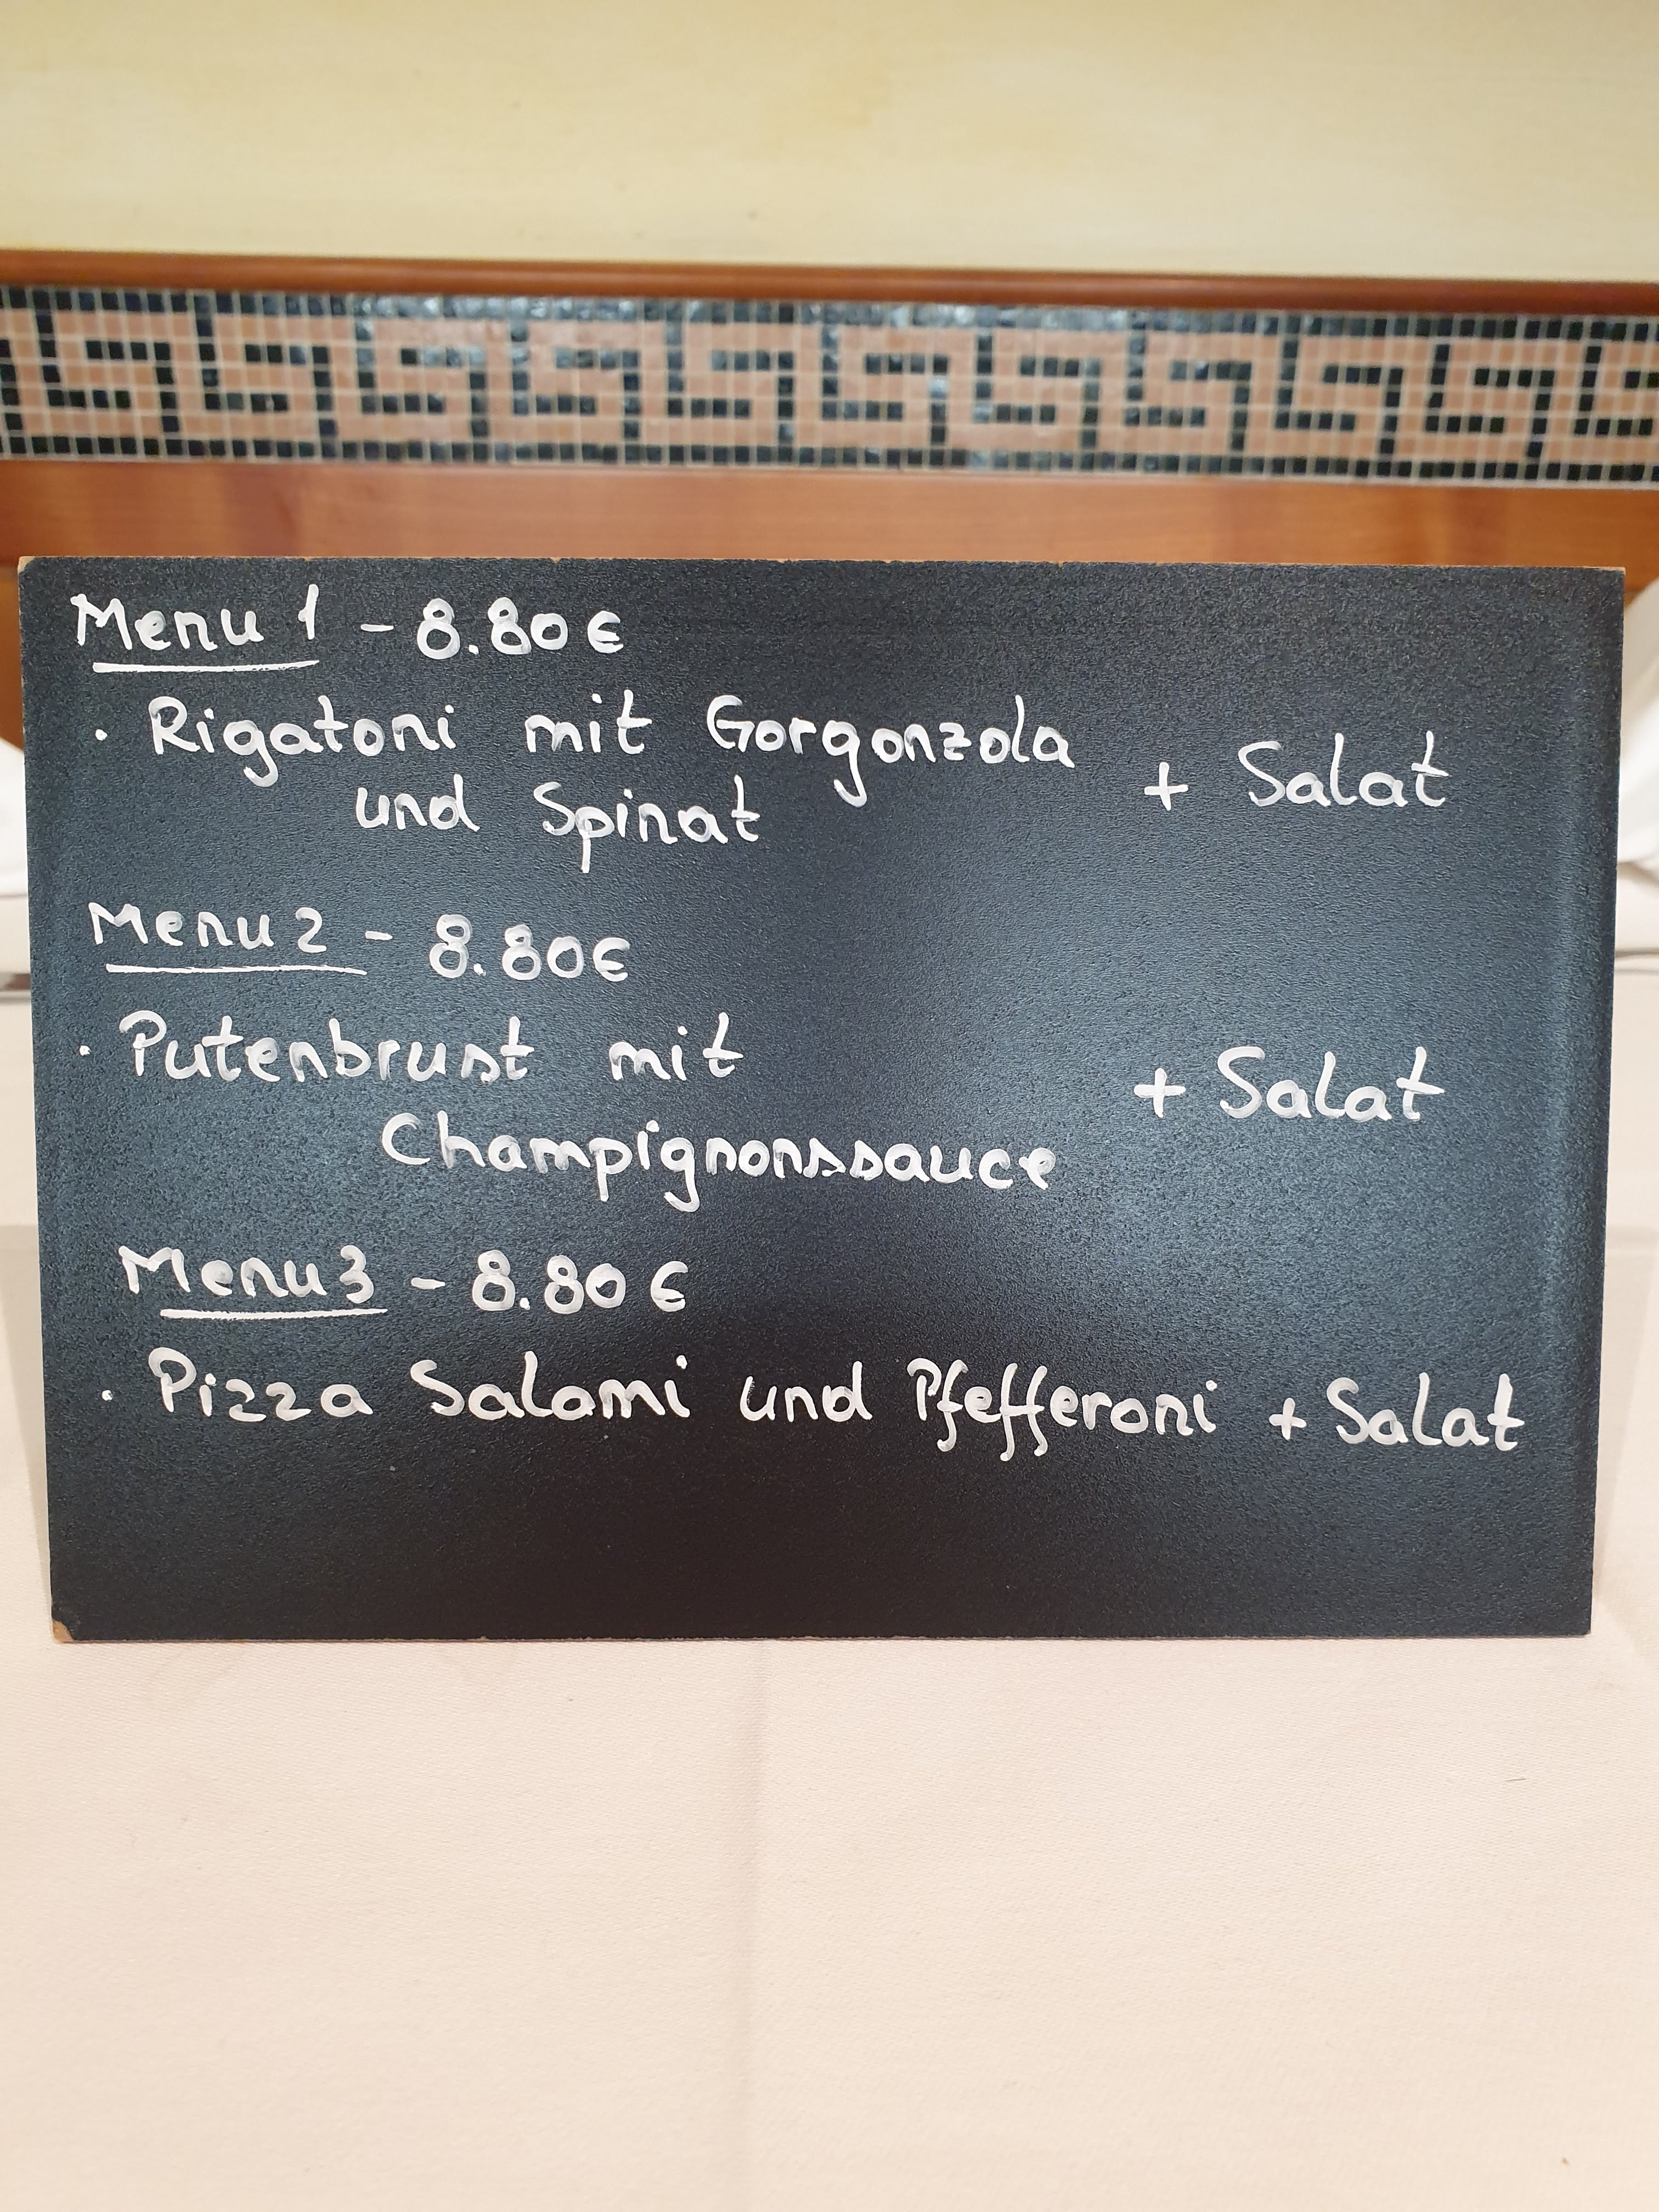 Menu 1 - 8.80 €
· Rigatoni mit Gorgonzola + Salat
und Spinat
Menu 2 - 8.80€
· Putenbrust mit + Salat
Champignonssauce
Menu 3 - 8.80 €
· Pizza Salami und Pfefferoni + Salat